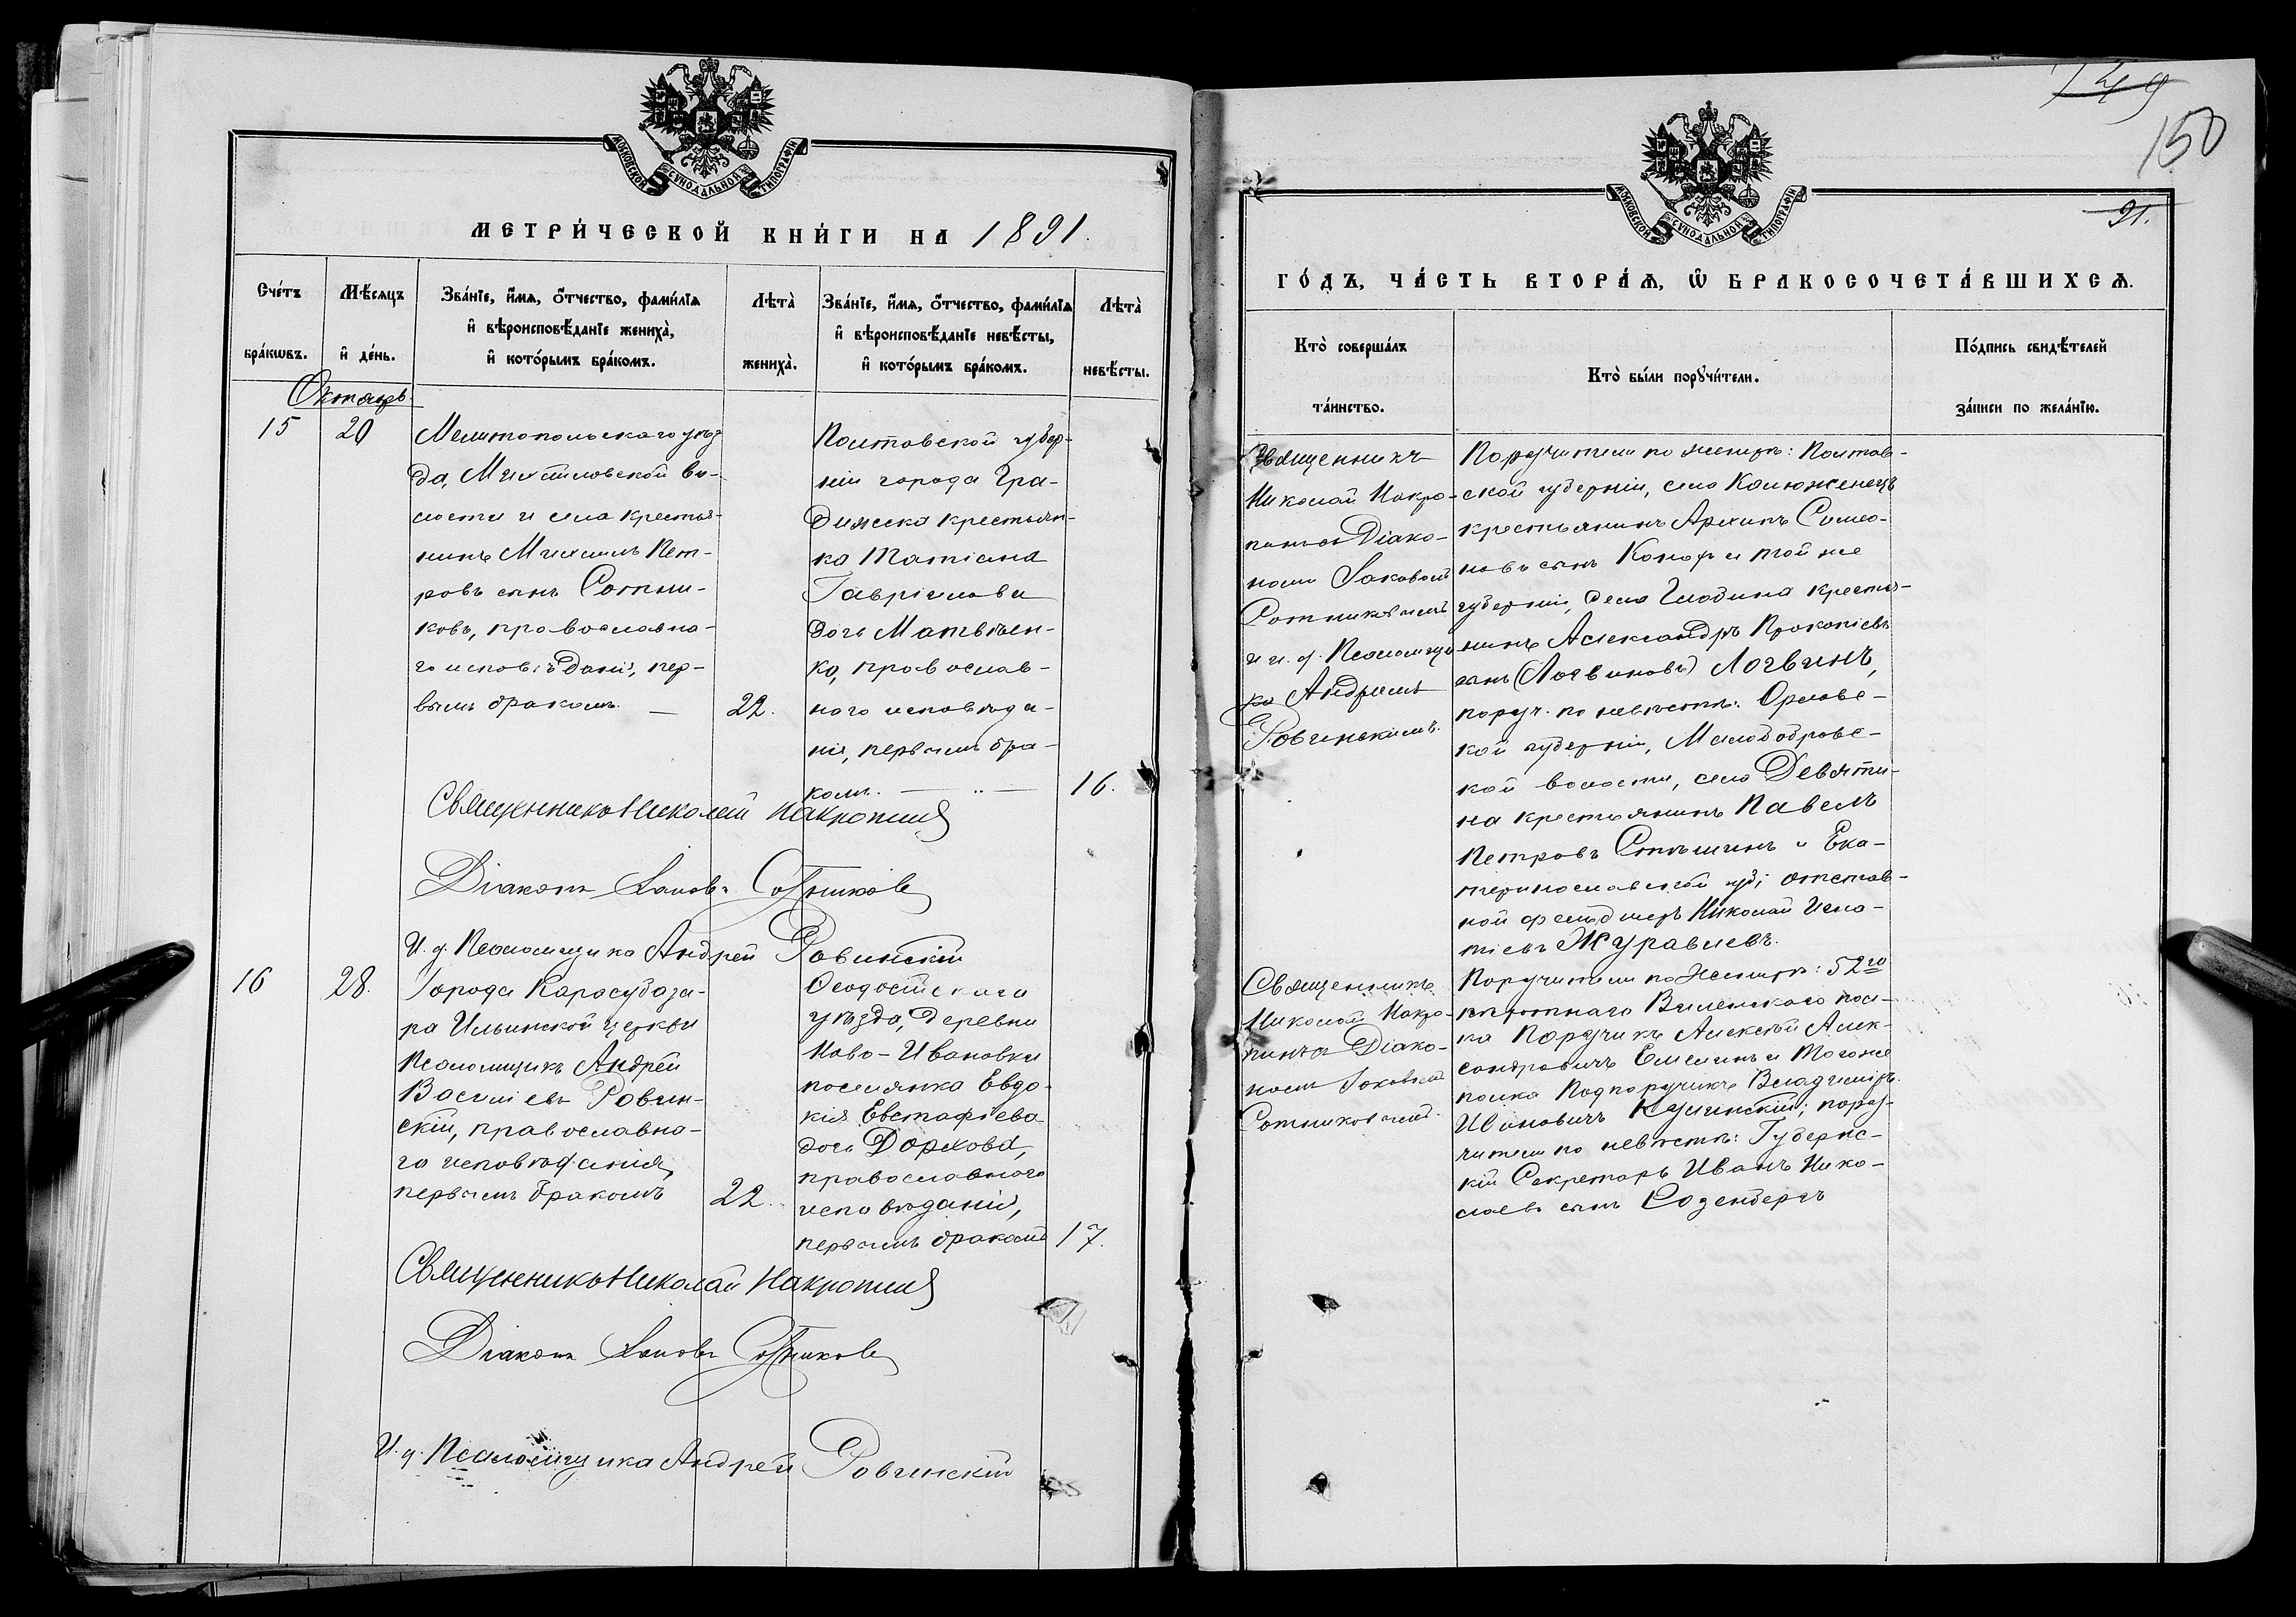 МОСКОВСКОЙ СѴНОДАЛЬНОЙ ТИПОГРАФІИ
МЕТРИ́ЧЕСКОЙ КНИ́ГИ НА 1891.
Сче́тъ бра́кѡвъ.
Мѣ́сяцъ и҆ де́нь.
Зва́нїе, и҆́мѧ, ѻ҆́тчество, фами́лїѧ
и҆ вѣроисповѣ́данїе жениха̀,
и҆ кото́рымъ бра́комъ.
Лѣта̀ жениха̀.
Зва́нїе, и҆́мѧ, ѻ҆́тчество, фами́лїѧ
и҆ вѣроисповѣ́данїе невѣ́сты,
и҆ кото́рымъ бра́комъ.
Лѣта̀ невѣ́сты.
Октябрь
15
20
Мелитопольскаго уѣз-
да, Михайловской во-
лости и села крестья-
нинъ Михаилъ Пет-
ровъ сынъ Сотни-
ковъ, православна-
го исповѣданія, пер-
вымъ бракомъ. —
22.
Полтавской губер-
ніи города Гра-
дижска крестьян-
ка Татіана
Гавріилова
дочь Матвѣен-
ко, православ-
наго исповѣда-
нія, первымъ бра-
комъ. —
16.
Священникъ Николай Накропинъ
Діаконъ Іаковъ Сотниковъ
И. д. Псаломщика Андрей Ровинскій
16
28.
Города Карасубаза-
ра Ильинской церкви
Псаломщикъ Андрей
Василіевъ Ровин-
скій, православна-
го исповѣданія,
первымъ бракомъ
22.
Ѳеодосійскаго
уѣзда, деревни
Ново-Ивановки
поселянка Евдо-
кія Евстафіева
дочь Дорхова,
православнаго
исповѣданія,
первымъ бракомъ
17.
Священникъ Николай Накропинъ
Діаконъ Іаковъ Сотниковъ
И. д. Псаломщика Андрей Ровинскій
149
150
91.
МОСКОВСКОЙ СѴНОДАЛЬНОЙ ТИПОГРАФІИ
ГО́ДЪ, ЧА́СТЬ ВТОРА́Ѧ, Ѡ҆ БРАКОСОЧЕТА́ВШИХСѦ.
Кто̀ соверша́лъ
та́инство.
Кто̀ бы́ли порꙋчи́тели.
По́дпись свидѣ́телей
за́писи по жела́нїю.
Священникъ
Николай Накро-
пинъ съ Діако-
номъ Іаковомъ
Сотниковымъ
и и. д. Псаломщи-
ка Андреемъ
Ровинскимъ.
Поручители по женихѣ: Полтав-
ской губерніи, села
крестьянинъ Архипъ Симео-
новъ сынъ и той же
губерніи, села Глобина крестья-
нинъ Александръ Прокопіевъ
сынъ (Логвиновъ) Логвинъ,
поруч. по невѣстѣ: Орловс-
кой губерніи,
кой волости, села Девяти-
на крестьянинъ Павелъ
Петровъ и Ека-
теринославской губ; отстав-
ной фельдшеръ Николай Игна-
тіевъ Журавлевъ.
Священникъ
Николай Накро-
пинъ съ Діако-
номъ Іаковомъ
Сотниковымъ.
Поручители по женихѣ: 52го
пѣхотнаго Виленскаго пол-
ка Поручикъ Алексѣй Алек-
сандровичъ Емелинъ и того же
полка Подпоручикъ Владиміръ
Ивановичъ; пору-
чители по невѣстѣ: Губернс-
кій Секретарь Иванъ Нико-
лаевъ сынъ Розенбергъ